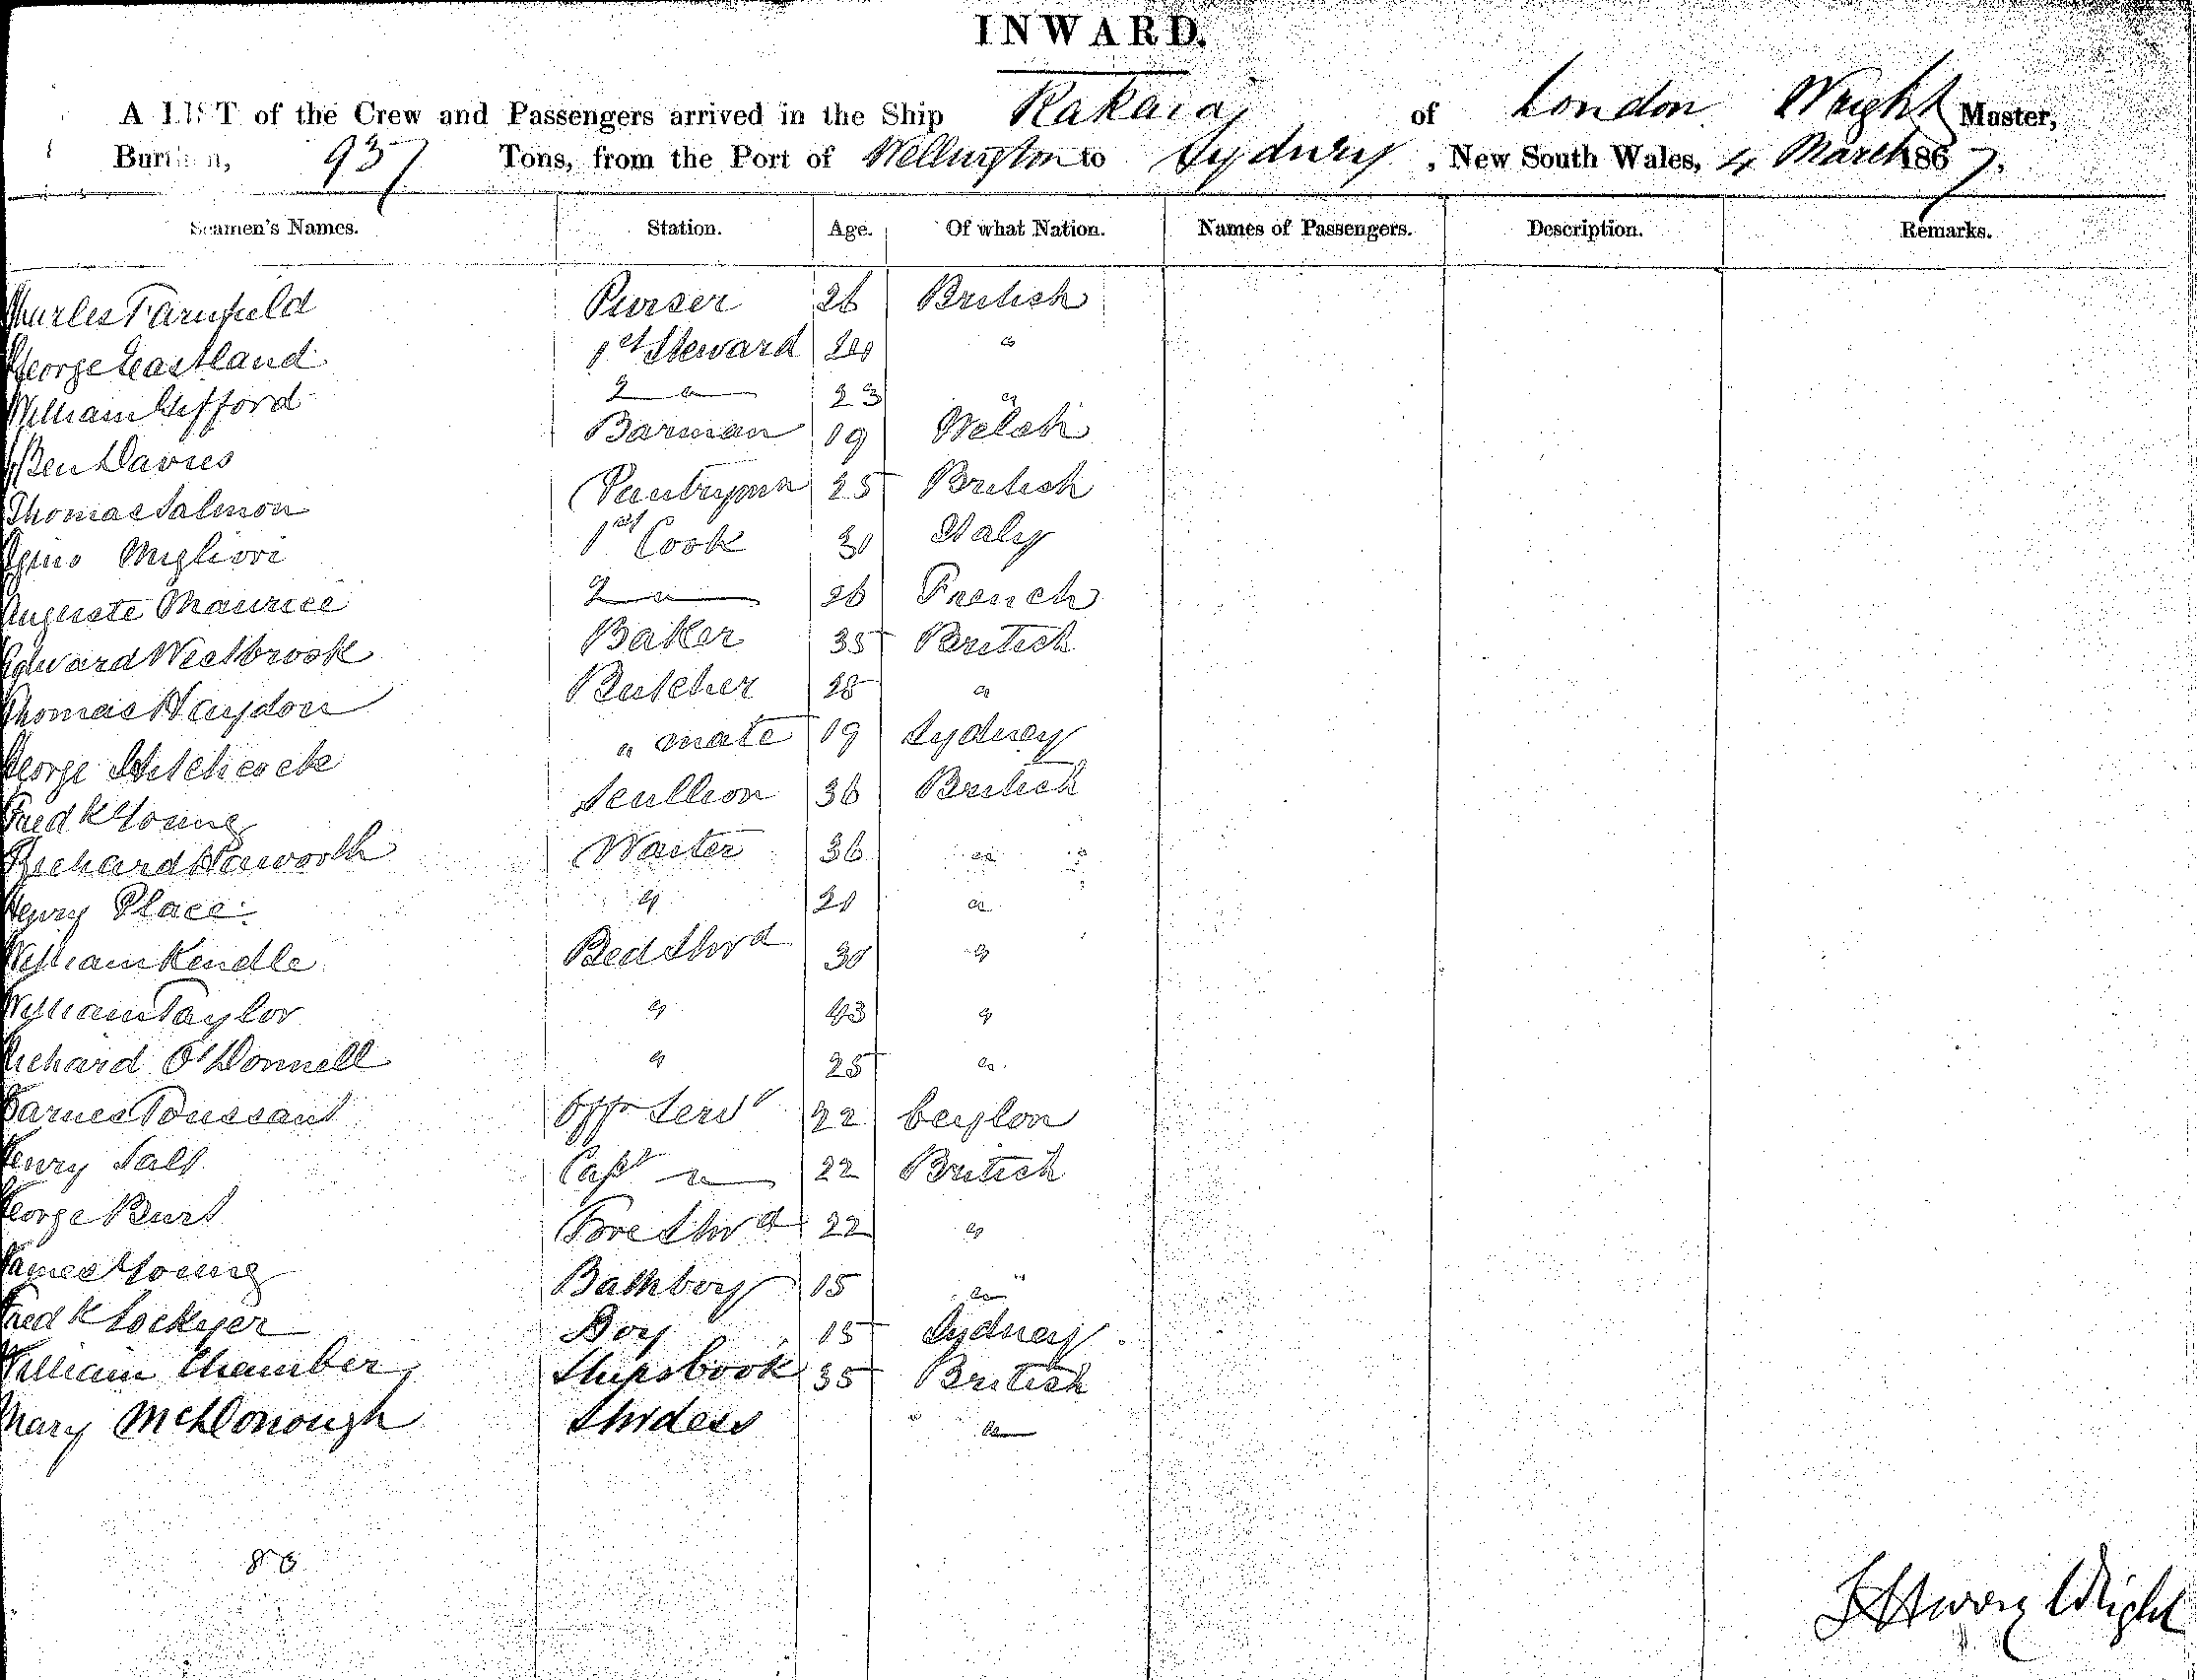 INWARD.
A LIST of the Crew and Passengers arrived in the Ship Rakaia of London Wright Master,
Burthen, 937 Tons, from the Port of Wellington to Sydney, New South Wales, 4 March 1867,
Seamen's Names. Station. Age. Of what Nation. Names of Passengers. Description. Remarks.
Charles Farnfield Purser 26 British
George Eastland 1st Steward "
William Gifford 2 " 23 "
Ben Davies Barman 19 Welsh
Thomas Salmon Pantrymn 25 British
Migliori 1st Cook 30 Italy
Auguste Maurice 2 " 26 French
Edward Westbrook Baker 35 British
Thomas Haydon Butcher 28 "
George Hitchcock " mate 19 Sydney
Fredk Young Scullion 36 British
Richard Haworth Waiter 36 "
Henry Place " 21 "
William Kendle Bed Stwd 30 "
William Taylor " 43 "
Richard O'Donnell " 25 "
James Toussant Offr Servt 22 Ceylon
Henry Salt Capt " 22 British
George Burt Fore Stwd 22 "
James Young Bathboy 15 "
Fredk Lockyer Boy 15 Sydney
William Chamber Ships Cook 35 British
Mary McDonough Stwdess "
Wright